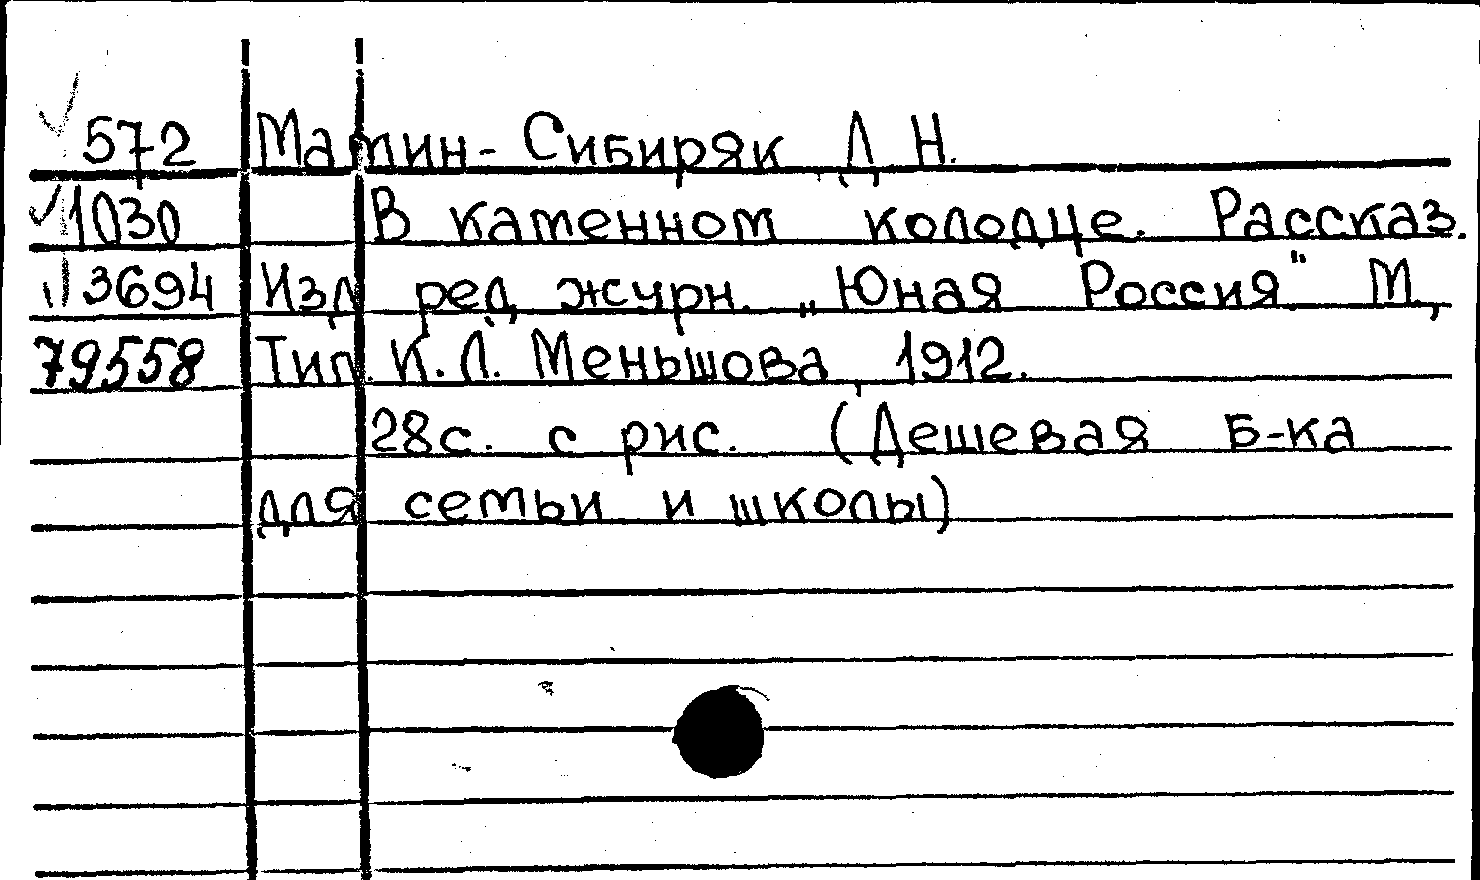 572 Мамин-Сибиряк Д. Н.
1030 В каменном колодце. Рассказ.
3694 Изд. ред. журн. „Юная Россия" М.,
79558 Тип. К.Л. Меньшова, 1912.
28с. с рис. (Дешевая Б-ка
для семьи и школы)